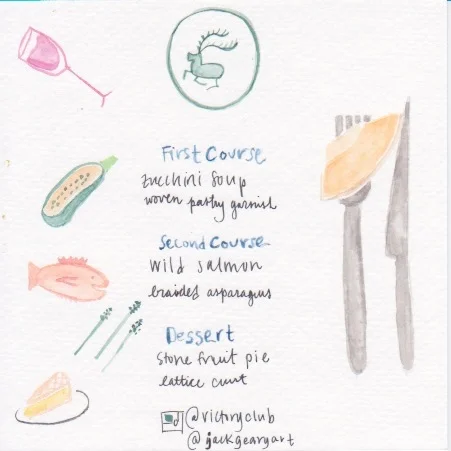 First Course
zucchini soup
woven pastry garnish
Second Course
wild salmon
braided asparagus
Dessert
stone fruit pie
lattice crust
@victoryclub
@jackgearyart